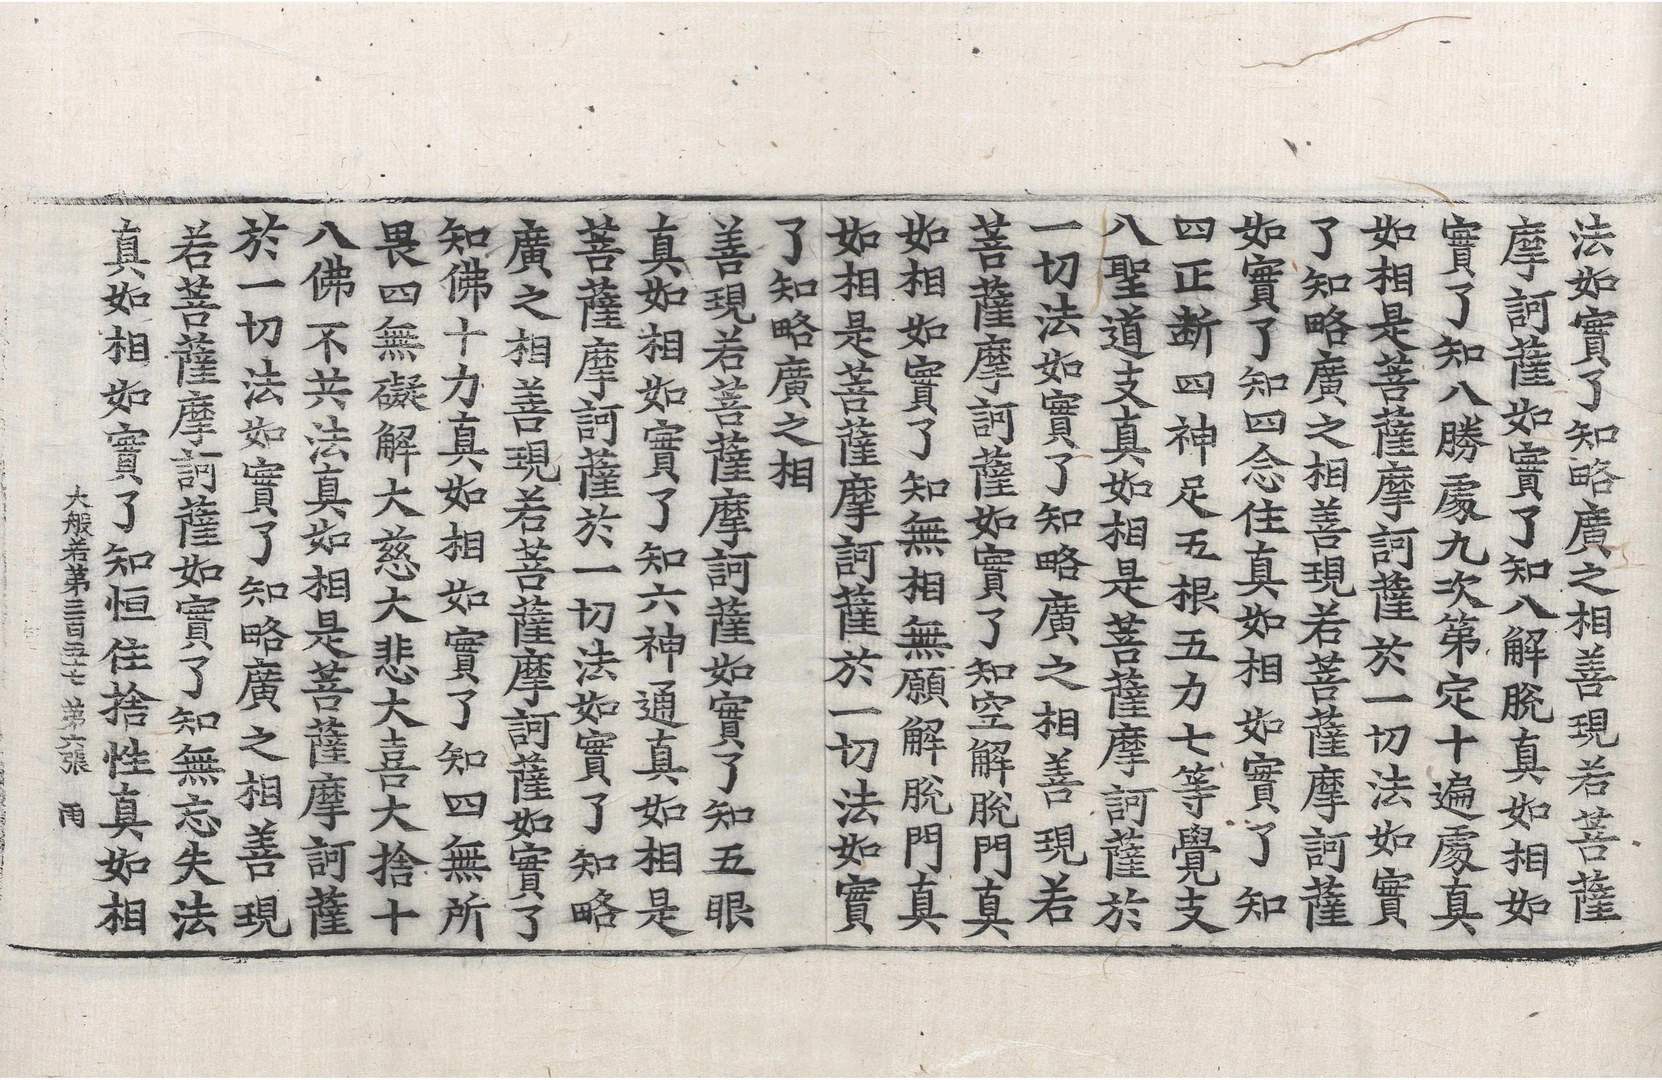 法如實了知略廣之相善現若菩薩
摩訶薩如實了知八解脫真如相如
實了知八勝處九次第定十遍處真
如相是菩薩摩訶薩於一切法如實
了知略廣之相善現若菩薩摩訶薩
如實了知四念住真如相如實了知
四正斷四神足五根五力七等覺支
八聖道支真如相是菩薩摩訶薩於
一切法如實了知略廣之相善現若
菩薩摩訶薩如實了知空解脫門真
如相如實了知無相無願解脫門真
如相是菩薩摩訶薩於一切法如實
了知略廣之相
善現若菩薩摩訶薩如實了知五眼
真如相如實了知六神通真如相是
菩薩摩訶薩於一切法如實了知略
廣之相善現若菩薩摩訶薩如實了
知佛十力真如相如實了知四無所
畏四無礙解大慈大悲大喜大捨十
八佛不共法真如相是菩薩摩訶薩
於一切法如實了知略廣之相善現
若菩薩摩訶薩如實了知無忘失法
真如相如實了知恒住捨性真如相
大般若第三百五十七 第六張 雨